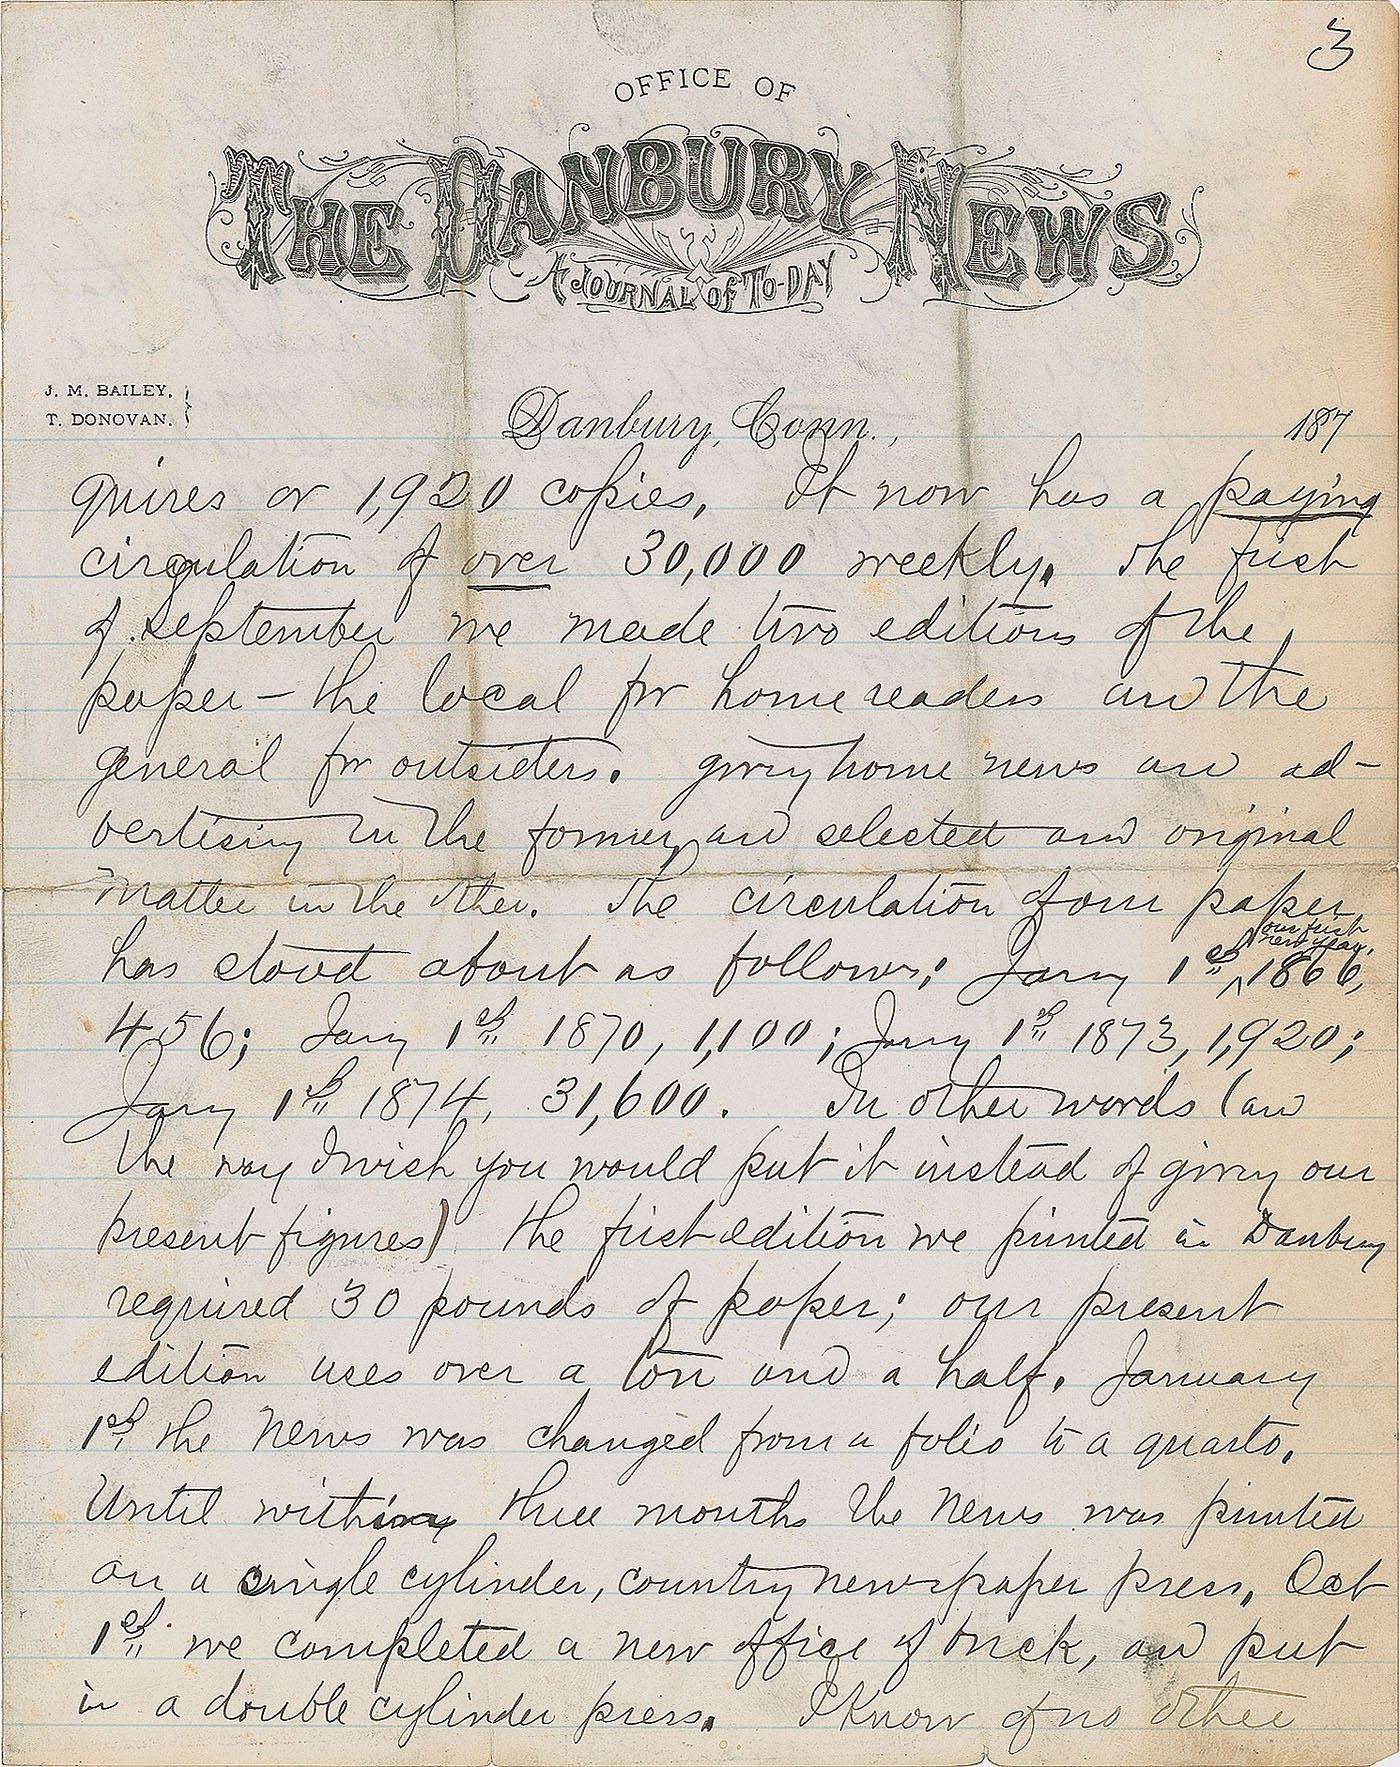 3
OFFICE OF
THE DANBURY NEWS
A JOURNAL OF TO-DAY
J. M. BAILEY,
T. DONOVAN.
Danbury, Conn., 187
quires or 1,920 copies. It now has a paying
circulation of over 30,000 weekly. The first
of September we made two editions of the
paper – the local for home readers and the
general for outsiders. giving home news and ad-
vertising in the former, and selected and original
matter in the other. The circulation of our paper
has stood about as follows: Jany 1st our first new year, 1866,
456; Jany 1st 1870, 1,100; Jany 1st 1873, 1,920;
Jany 1st 1874, 31,600. In other words (and
the way I wish you would put it instead of giving our
present figures) the first edition we printed in Danbury
required 30 pounds of paper; our present
edition uses over a ton and a half. January
1st the News was changed from a folio to a quarto.
Until within three months the News was printed
on a single cylinder, country newspaper press. Oct
1st we completed a new office of brick, and put
in a double cylinder press. I know of no other